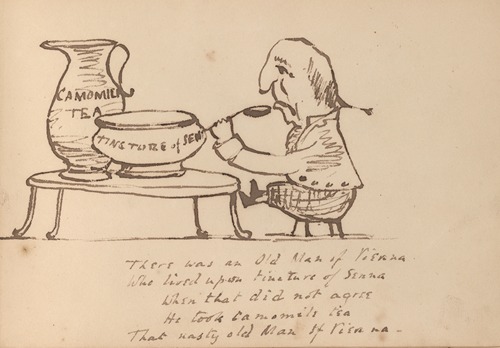 CAMOMILE
TEA
TINCTURE of SENN
There was an Old Man of Vienna
Who lived upon tincture of Senna
When that did not agree
He took Camomile tea
That nasty old Man of Vienna.